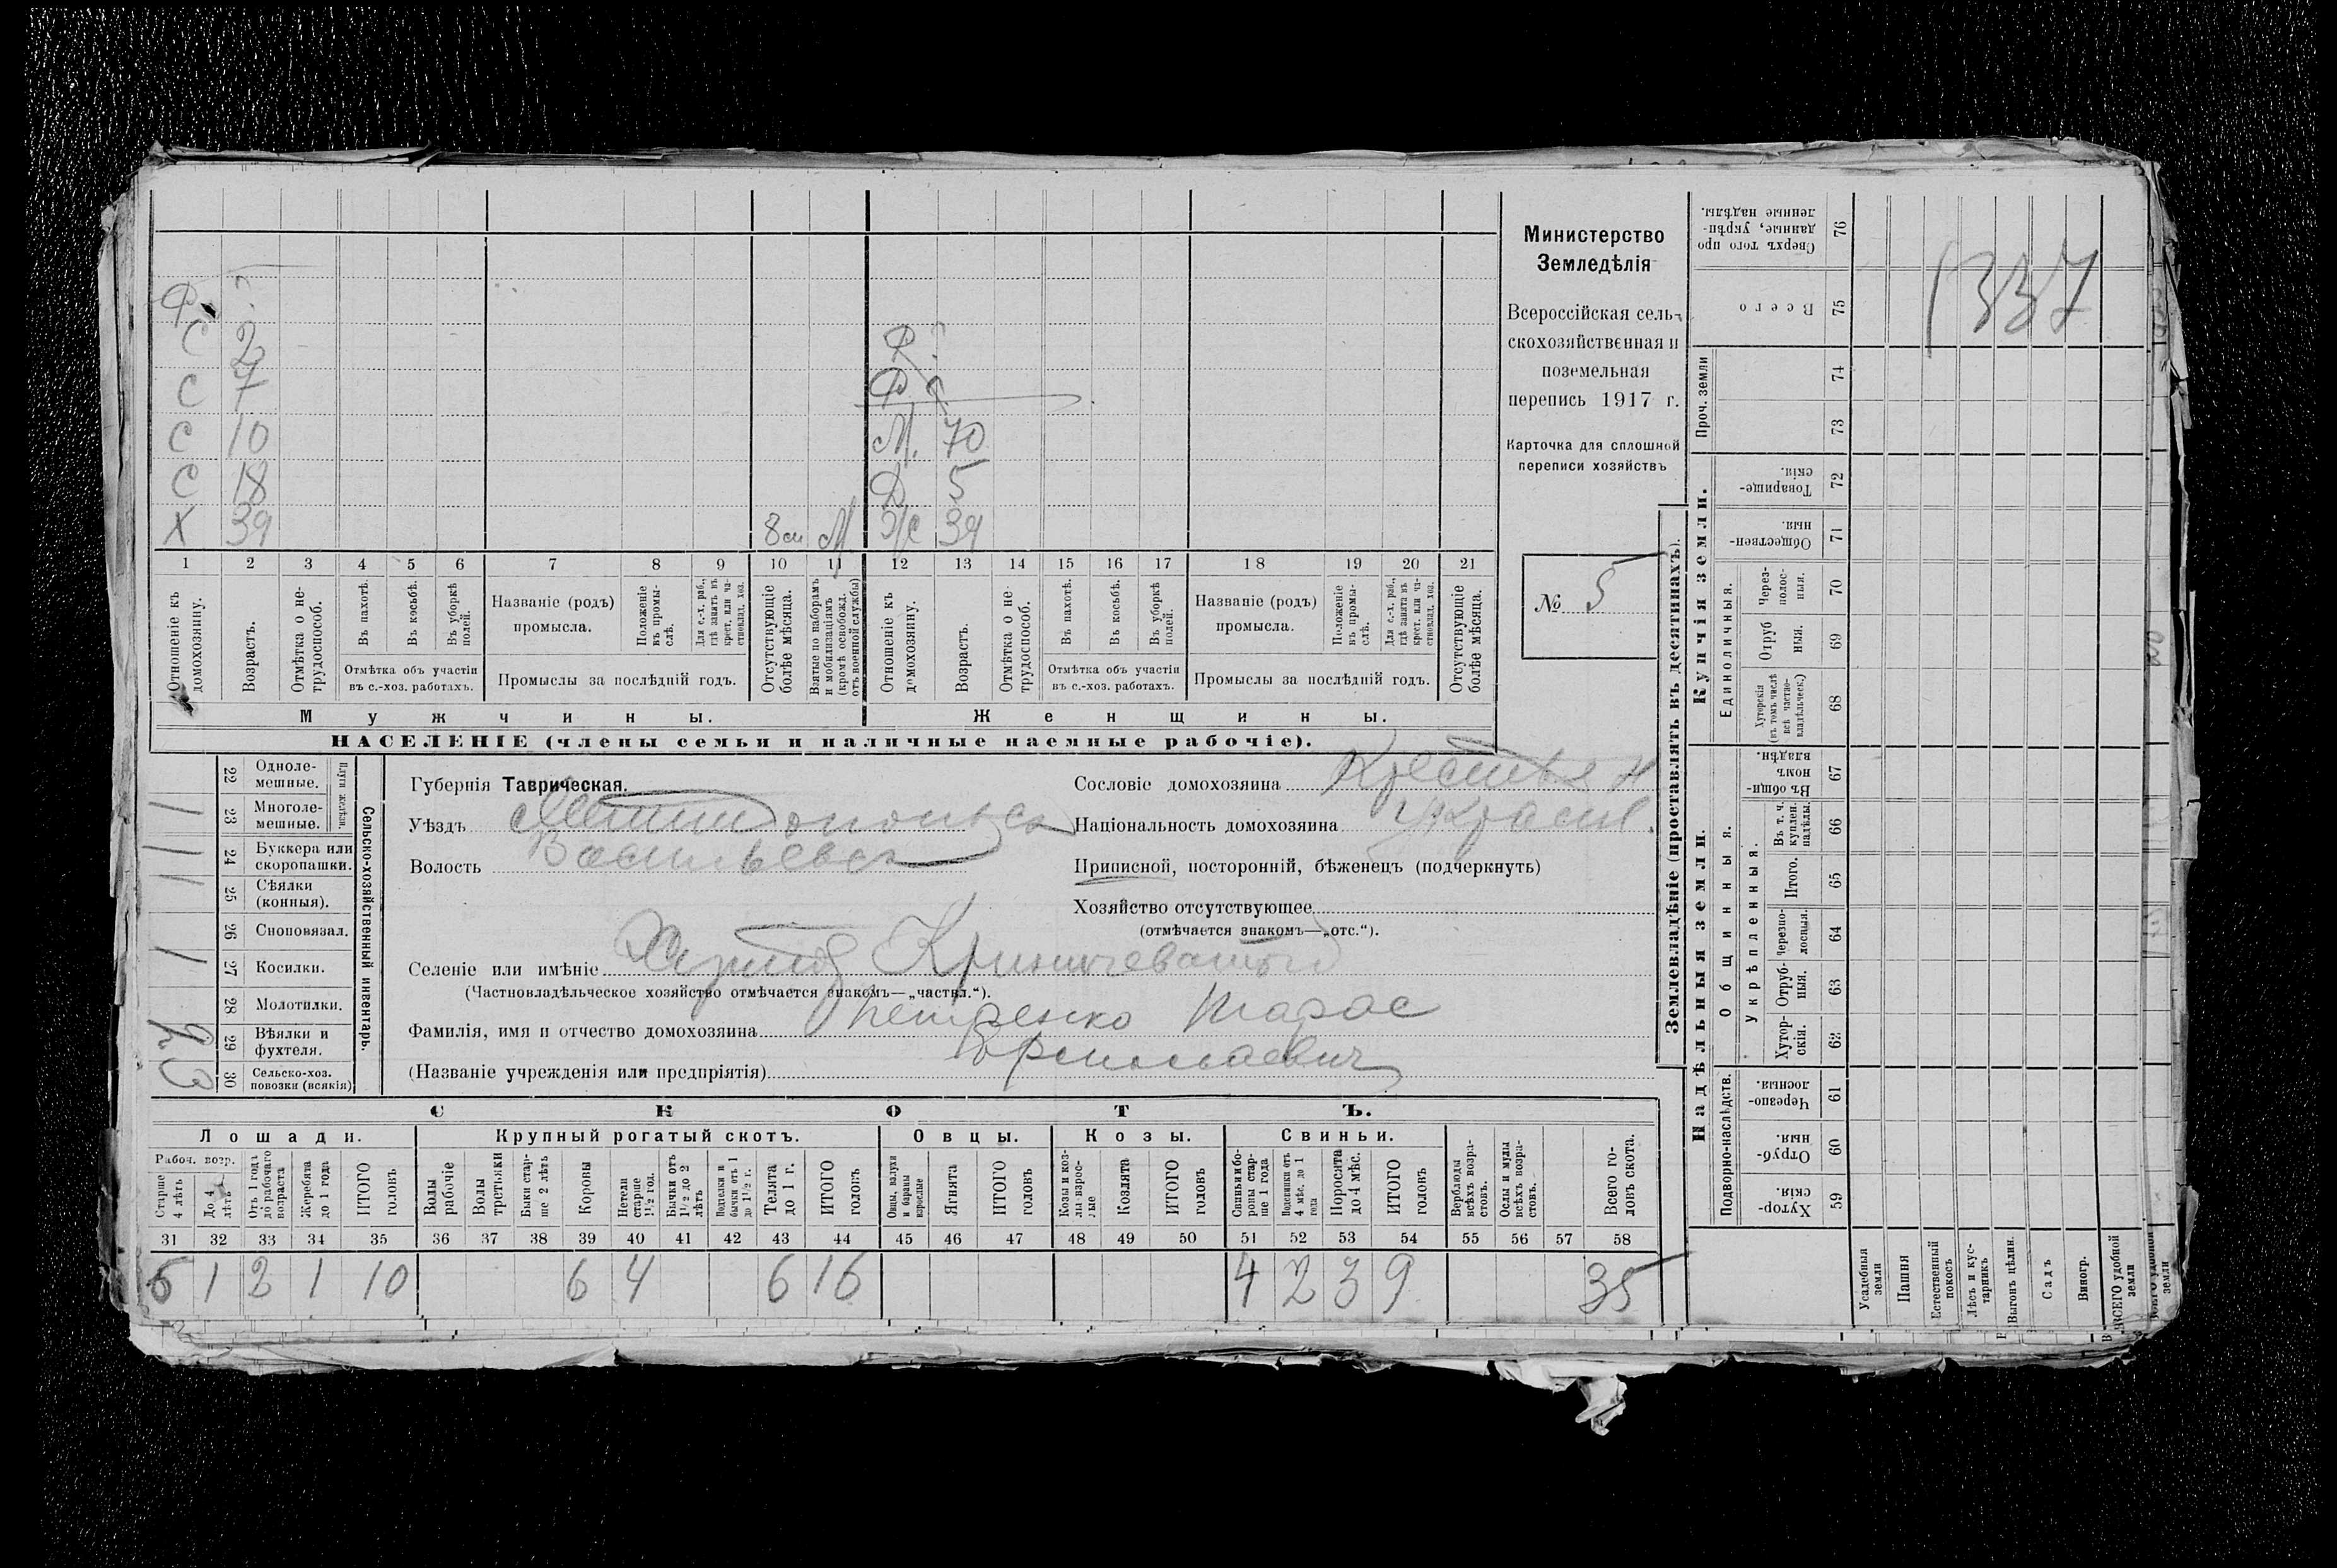 Министерство
Земледѣлія
Всероссійская сель-
скохозяйственная и
поземельная
перепись 1917 г.
Карточка для сплошной
переписи хозяйствъ
№ 5
Ф. ?
С 2
С 7
С 10
С 18
Х 39 8 м М
Ф. ?
Ф. ?
М. 70
Д 5
Ж 39
1 2 3 4 5 6 7 8 9 10 11 12 13 14 15 16 17 18 19 20 21
Отношеніе къ домохозяину.
Возрастъ.
Отмѣтка о не-трудоспособ.
Въ пахотѣ.
Въ косьбѣ.
Въ уборкѣ полей.
Отмѣтка объ участіи
въ с.-хоз. работахъ.
Названіе (родъ)
промысла.
Положеніе въ промы-слѣ.
Для с.-х. раб., гдѣ занятъ въ крест. или ча-стновлад. хоз.
Промыслы за послѣдній годъ.
Отсутствующіе болѣе мѣсяца.
Взятые по наборамъ и мобилизаціямъ (кромѣ освобожд. отъ военной службы)
Отношеніе къ домохозяину.
Возрастъ.
Отмѣтка о не-трудоспособ.
Въ пахотѣ.
Въ косьбѣ.
Въ уборкѣ полей.
Отмѣтка объ участіи
въ с.-хоз. работахъ.
Названіе (родъ)
промысла.
Положеніе въ промы-слѣ.
Для с.-х. раб., гдѣ занята въ крест. или ча-стновлад. хоз.
Промыслы за послѣдній годъ.
Отсутствующіе болѣе мѣсяца.
Мужчины.
Женщины.
НАСЕЛЕНІЕ (члены семьи и наличные наемные рабочіе).
Сельско-хозяйственный инвентарь.
Плуги желѣзн.
22 Одноле-мешные.
23 Многоле-мешные. 1
24 Буккера или скоропашки. 1
25 Сѣялки (конныя). 1
26 Сноповязал.
27 Косилки. 1
28 Молотилки.
29 Вѣялки и фухтеля.
30 Сельско-хоз. повозки (всякія) 3
Губернія Таврическая.
Уѣздъ Мелитопольск
Волость Васильевск
Сословіе домохозяина Крестьян
Національность домохозяина Украин.
Приписной, посторонній, бѣженецъ (подчеркнуть)
Хозяйство отсутствующее
(отмѣчается знакомъ—„отс.“).
Селеніе или имѣніе Хутор Криничеватый
(Частновладѣльческое хозяйство отмѣчается знакомъ—„частвл.“).
Фамилія, имя и отчество домохозяина Петренко Тарас
(Названіе учрежденія или предпріятія)
СКОТЪ.
Лошади. Крупный рогатый скотъ. Овцы. Козы. Свиньи.
Рабоч. возр.
Старше 4 лѣтъ
До 4 лѣтъ
Отъ 1 года до рабочаго возраста
Жеребята до 1 года
ИТОГО головъ
Волы рабочіе
Волы третьяки
Быки стар-ше 2 лѣтъ
Коровы
Нетели старше 1½ год.
Бычки отъ 1½ до 2 лѣтъ
Подтелки и бычки отъ 1 до 1½ г.
Телята до 1 г.
ИТОГО головъ
Овцы, валухи и бараны взрослые
Ягнята
ИТОГО головъ
Козы и коз-лы взрос-лые
Козлята
ИТОГО головъ
Свиньи и бо-ровы стар-ше 1 года
Подсвинки отъ 4 мѣс. до 1 года
Поросята до 4 мѣс.
ИТОГО головъ
Верблюды всѣхъ возра-стовъ.
Ослы и мулы всѣхъ возра-стовъ.
Всего го-ловъ скота.
31 32 33 34 35 36 37 38 39 40 41 42 43 44 45 46 47 48 49 50 51 52 53 54 55 56 57 58
6 1 2 1 10 6 4 6 16 4 2 3 9 35
Землевладѣніе (проставлять въ десятинахъ).
Купчія земли.
Надѣльныя земли.
Сверхъ того про-данные, укрѣп-ленные надѣлы. 76
Всего 75
Проч. земли 74 73
Товарище-скія. 72
Обществен-ныя. 71
Единоличныя.
Через-полос-ныя. 70
Отруб ныя. 69
Хуторскія (въ томъ числѣ всѣ частно-владѣльческ.) 68
Общинныя.
Въ общи-номъ владѣн. 67
Укрѣпленныя.
Въ т. ч. куплен. надѣлы. 66
Итого. 65
Черезпо-лосныя. 64
Отруб-ныя. 63
Хутор-скія. 62
Подворно-наслѣдств.
Черезпо-лосныя. 61
Отруб-ныя. 60
Хутор-скія. 59
Усадебныя земли
Пашня
Естественный покосъ
Лѣсъ и кус-тарникъ
Выгонъ цѣлин.
Садъ
Виногр.
ВСЕГО удобной земли
1337